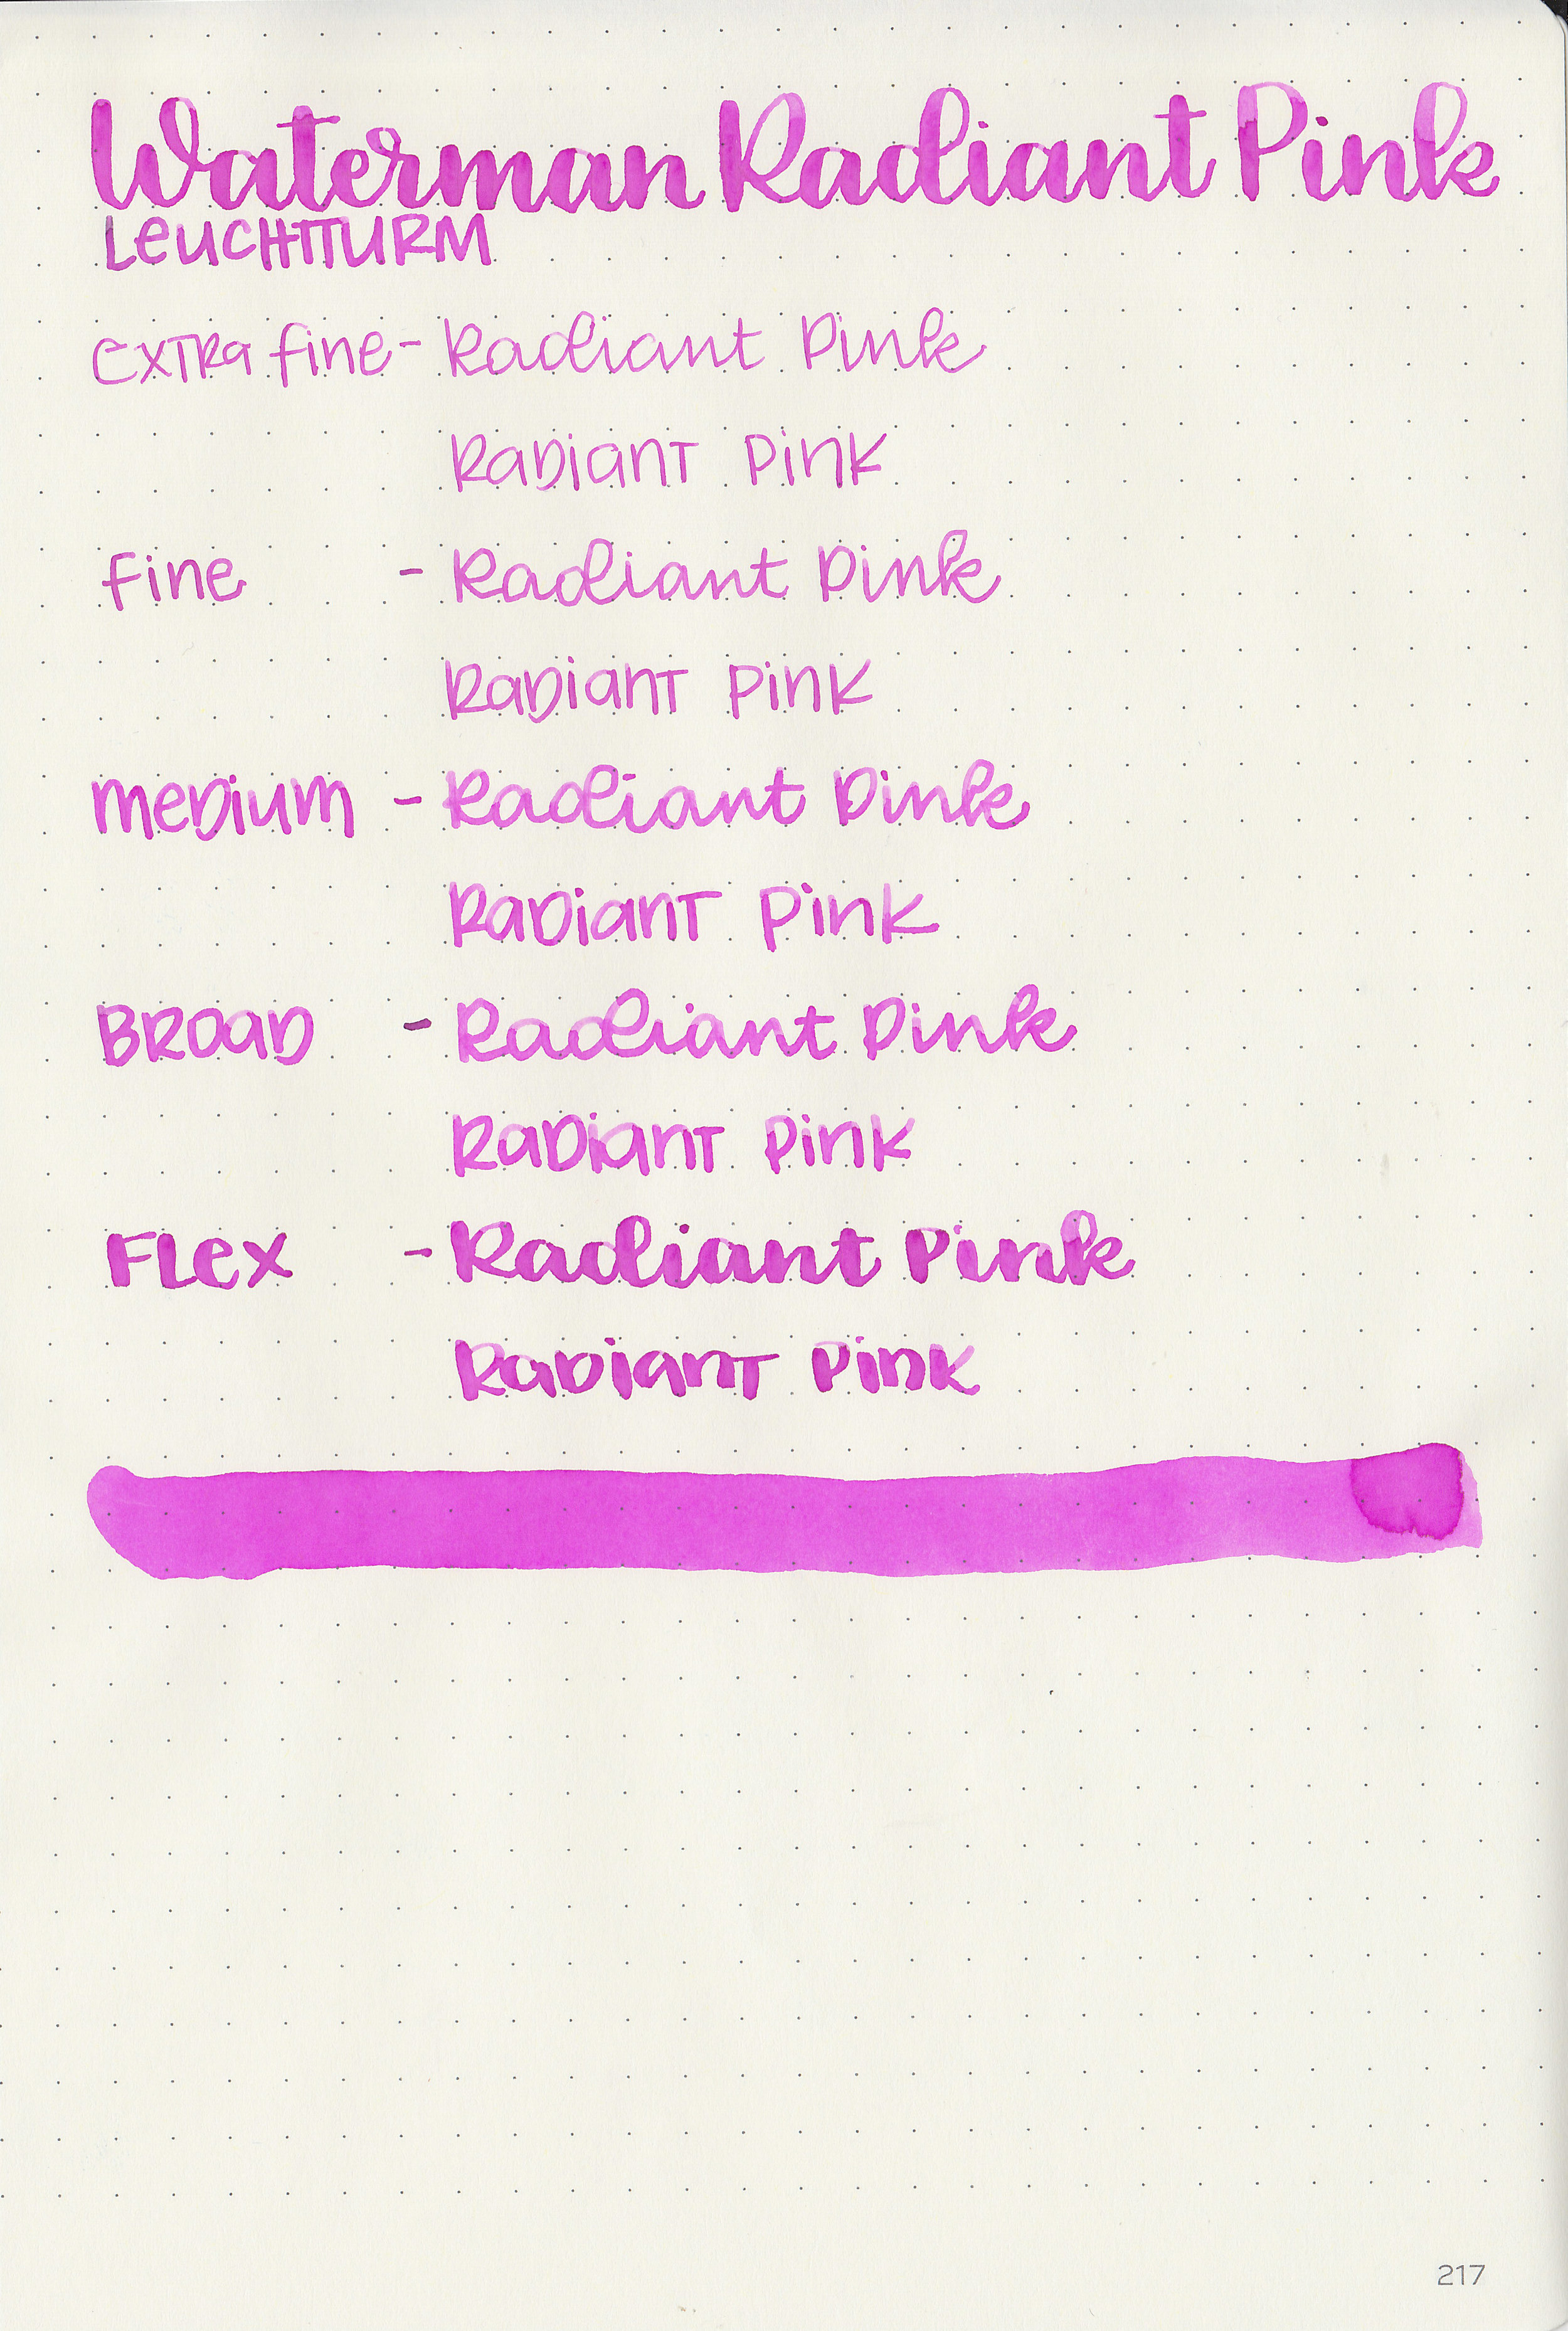 Waterman Radiant Pink
LeUCHTTURM
exTRa fine - Radiant Pink
RaDianT Pink
fine - Radiant Pink
RaDianT Pink
meDium - Radiant Pink
RaDianT Pink
BROaD - Radiant Pink
RaDianT Pink
FLex - Radiant Pink
RaDianT Pink
217